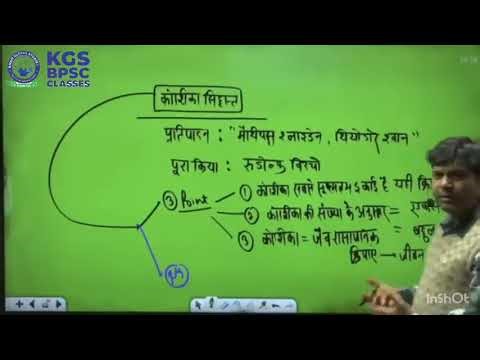 KGS
BPSC
CLASSES
कोशिका सिद्धान्त
प्रतिपादन : "मैथियस श्लाइडेन, थियोडोर श्वान"
पूरा किया : रुडोल्फ विरचो
③ Point
① कोशिका सबसे सूक्ष्मतम इकाई है यही
② कोशिका की संख्या के अनुसार =
③ कोशिका = जैव रासायनिक
क्रियाए → जीवन
InShOt